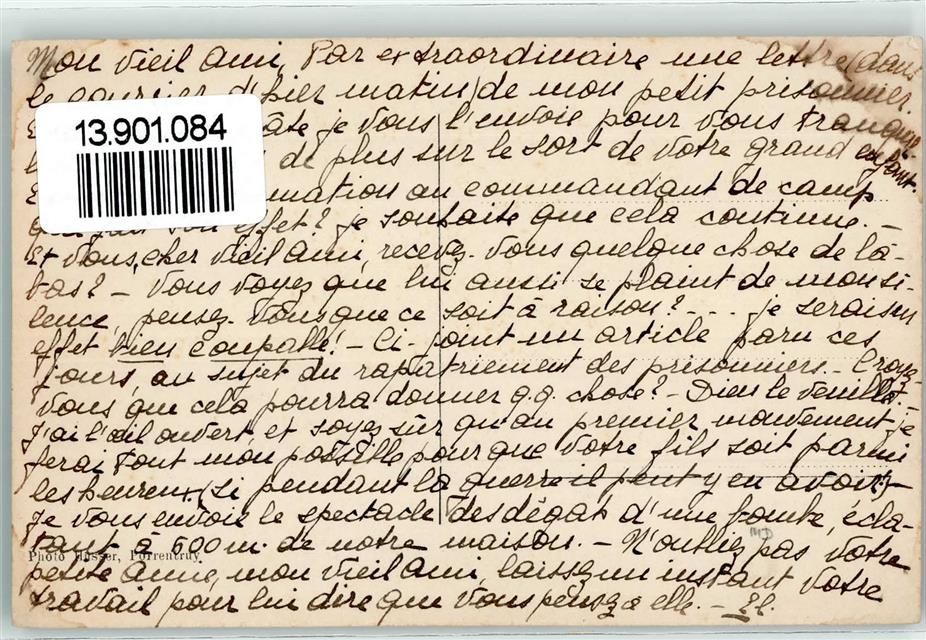 Mon vieil ami, Par extraordinaire une lettre (dans
le courrier d'hier matin) de mon petit prisonnier.
13.901.084
je vous l'envoie pour vous tranquil-
de plus sur le sort de votre grand enfant.
mation au commandant de camp
son effet? je souhaite que cela continue. -
Et vous, cher vieil ami, recevez-vous quelque chose de là-
bas? - Vous voyez que lui aussi se plaint de mon si-
lence, pensez-vous que ce soit à raison? - . . . je serais en
effet bien coupable! - Ci-joint un article paru ces
jours, au sujet du rapatriement des prisonniers. - Croyez-
vous que cela pourra donner q.q. chose? - Dieu le veuille! -
J'ai l'œil ouvert, et soyez sûr qu'au premier mouvement, je
ferai tout mon possible pour que votre fils soit parmi
les heureux, (si pendant la guerre il peut y en avoir) -
Je vous envoie le spectacle des dégat d'une bombe, écla-
tant à 600 m. de notre maison. - N'oubliez pas votre
Photo Husser, Porrentruy
petite Anne, mon vieil ami, laissez un instant votre
travail pour lui dire que vous pensez à elle. -